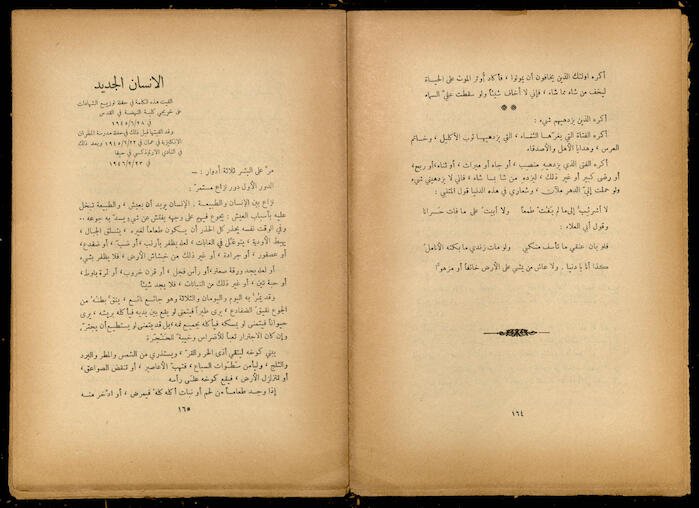 أكره اولئك الذين يخافون أن يموتوا ، فأكاد أوثر الموت على الحياة
ليخف من شاء مما شاء ، فإني لا أخاف شيئاً ولو سقطت عليّ السماء
أكره الذين يزدهيهم شيء :
أكره الفتاة التي يغرّها الثناء ، التي يزدهيها ثوب الأكليل ، وخاتم
العرس ، وهدايا الأهل والأصدقاء
أكره الفتى الذي يزدهيه منصب ، أو جاه أو ميراث ، أو ثناء ، أو ربح ،
أو رضى كبير أو غير ذلك ، ليزده من شاء بما شاء ، فاني لا يزدهيني شيء
ولو حملت إليّ الدهر ملآن ، وشعاري في هذه الدنيا قول المتنبي :
لا أشرئب إلى ما لم يفت طمعاً ولا أبيت على ما فات حسرانا
وقول أبي العلاء :
فلو بان عنقي ما تأسف منكبي ولو مات زندي ما بكته الأنامل
كذا أنا يا دنيا ، ولا عاش من يمشي على الأرض خائفاً أو مزهواً
١٦٤
الانسان الجديد
القيت هذه الكلمة في حفلة توزيع الشهادات
على خريجي كلية النهضة في القدس
في ١٩٤٥/٦/٢٨
وقد القيتها قبل ذلك في حفلة مدرسة المطران
الانكليزية في عمان في ١٩٤٥/٦/٢٢ وبعد ذلك
في النادي الارثوذكسي في حيفا
في ١٩٤٦/٢/٢٣
مرّ على البشر ثلاثة أدوار : —
الدور الأول دور نزاع مستمر :
نزاع بين الإنسان والطبيعة . الإنسان يريد أن يعيش ، والطبيعة تبخل
عليه بأسباب العيش : يجوع فيهيم على وجهه يفتش عن شيء يسد به جوعه ..
وفي الوقت نفسه يحذر كل الحذر أن يكون طعاماً لغيره ، يتسلق الجبال ،
يهبط الأودية ، يتوغّل في الغابات ، لعله يظفر بأرنب ، أو ضبّ ، أو ضفدع ،
أو عصفور ، أو جرادة ، أو غير ذلك من خشاش الأرض ، فلا يظفر بشيء
أو لعله يجد ورقة صعتر ، أو رأس فجل ، أو قرن خروب ، أو ثمرة بلوط ،
أو حبة تين ، أو غير ذلك من النباتات ، فلا يجد شيئاً
وقد يمرّ به اليوم واليومان والثلاثة وهو جائع ، ينقّ بطنه من
الجوع نقيق الضفادع ، يرى طيراً فيتمنى لو يقع بين يديه فيأكله بريشه ، يرى
حيواناً فيتمنى لو يمسكه فيأكله بجميع فمه ، بل قد يتمنى لو يستطيع أن يجتر ،
وإن كان الاجترار تعباً للأضراس وخيبة للحنجرة
يبني كوخه ليتقي أذى الحر والقر ، ويستذري من الشمس والمطر والبرد
والثلج ، وليأمن سطوات السباع ، فتهب الأعاصير ، أو تنقض الصواعق ،
أو تتزلزل الأرض ، فيقع كوخه على رأسه
إذا وجد طعاماً من لحم أو نبات أكله كله فيمرض ، أو ادّخر منه
١٦٥